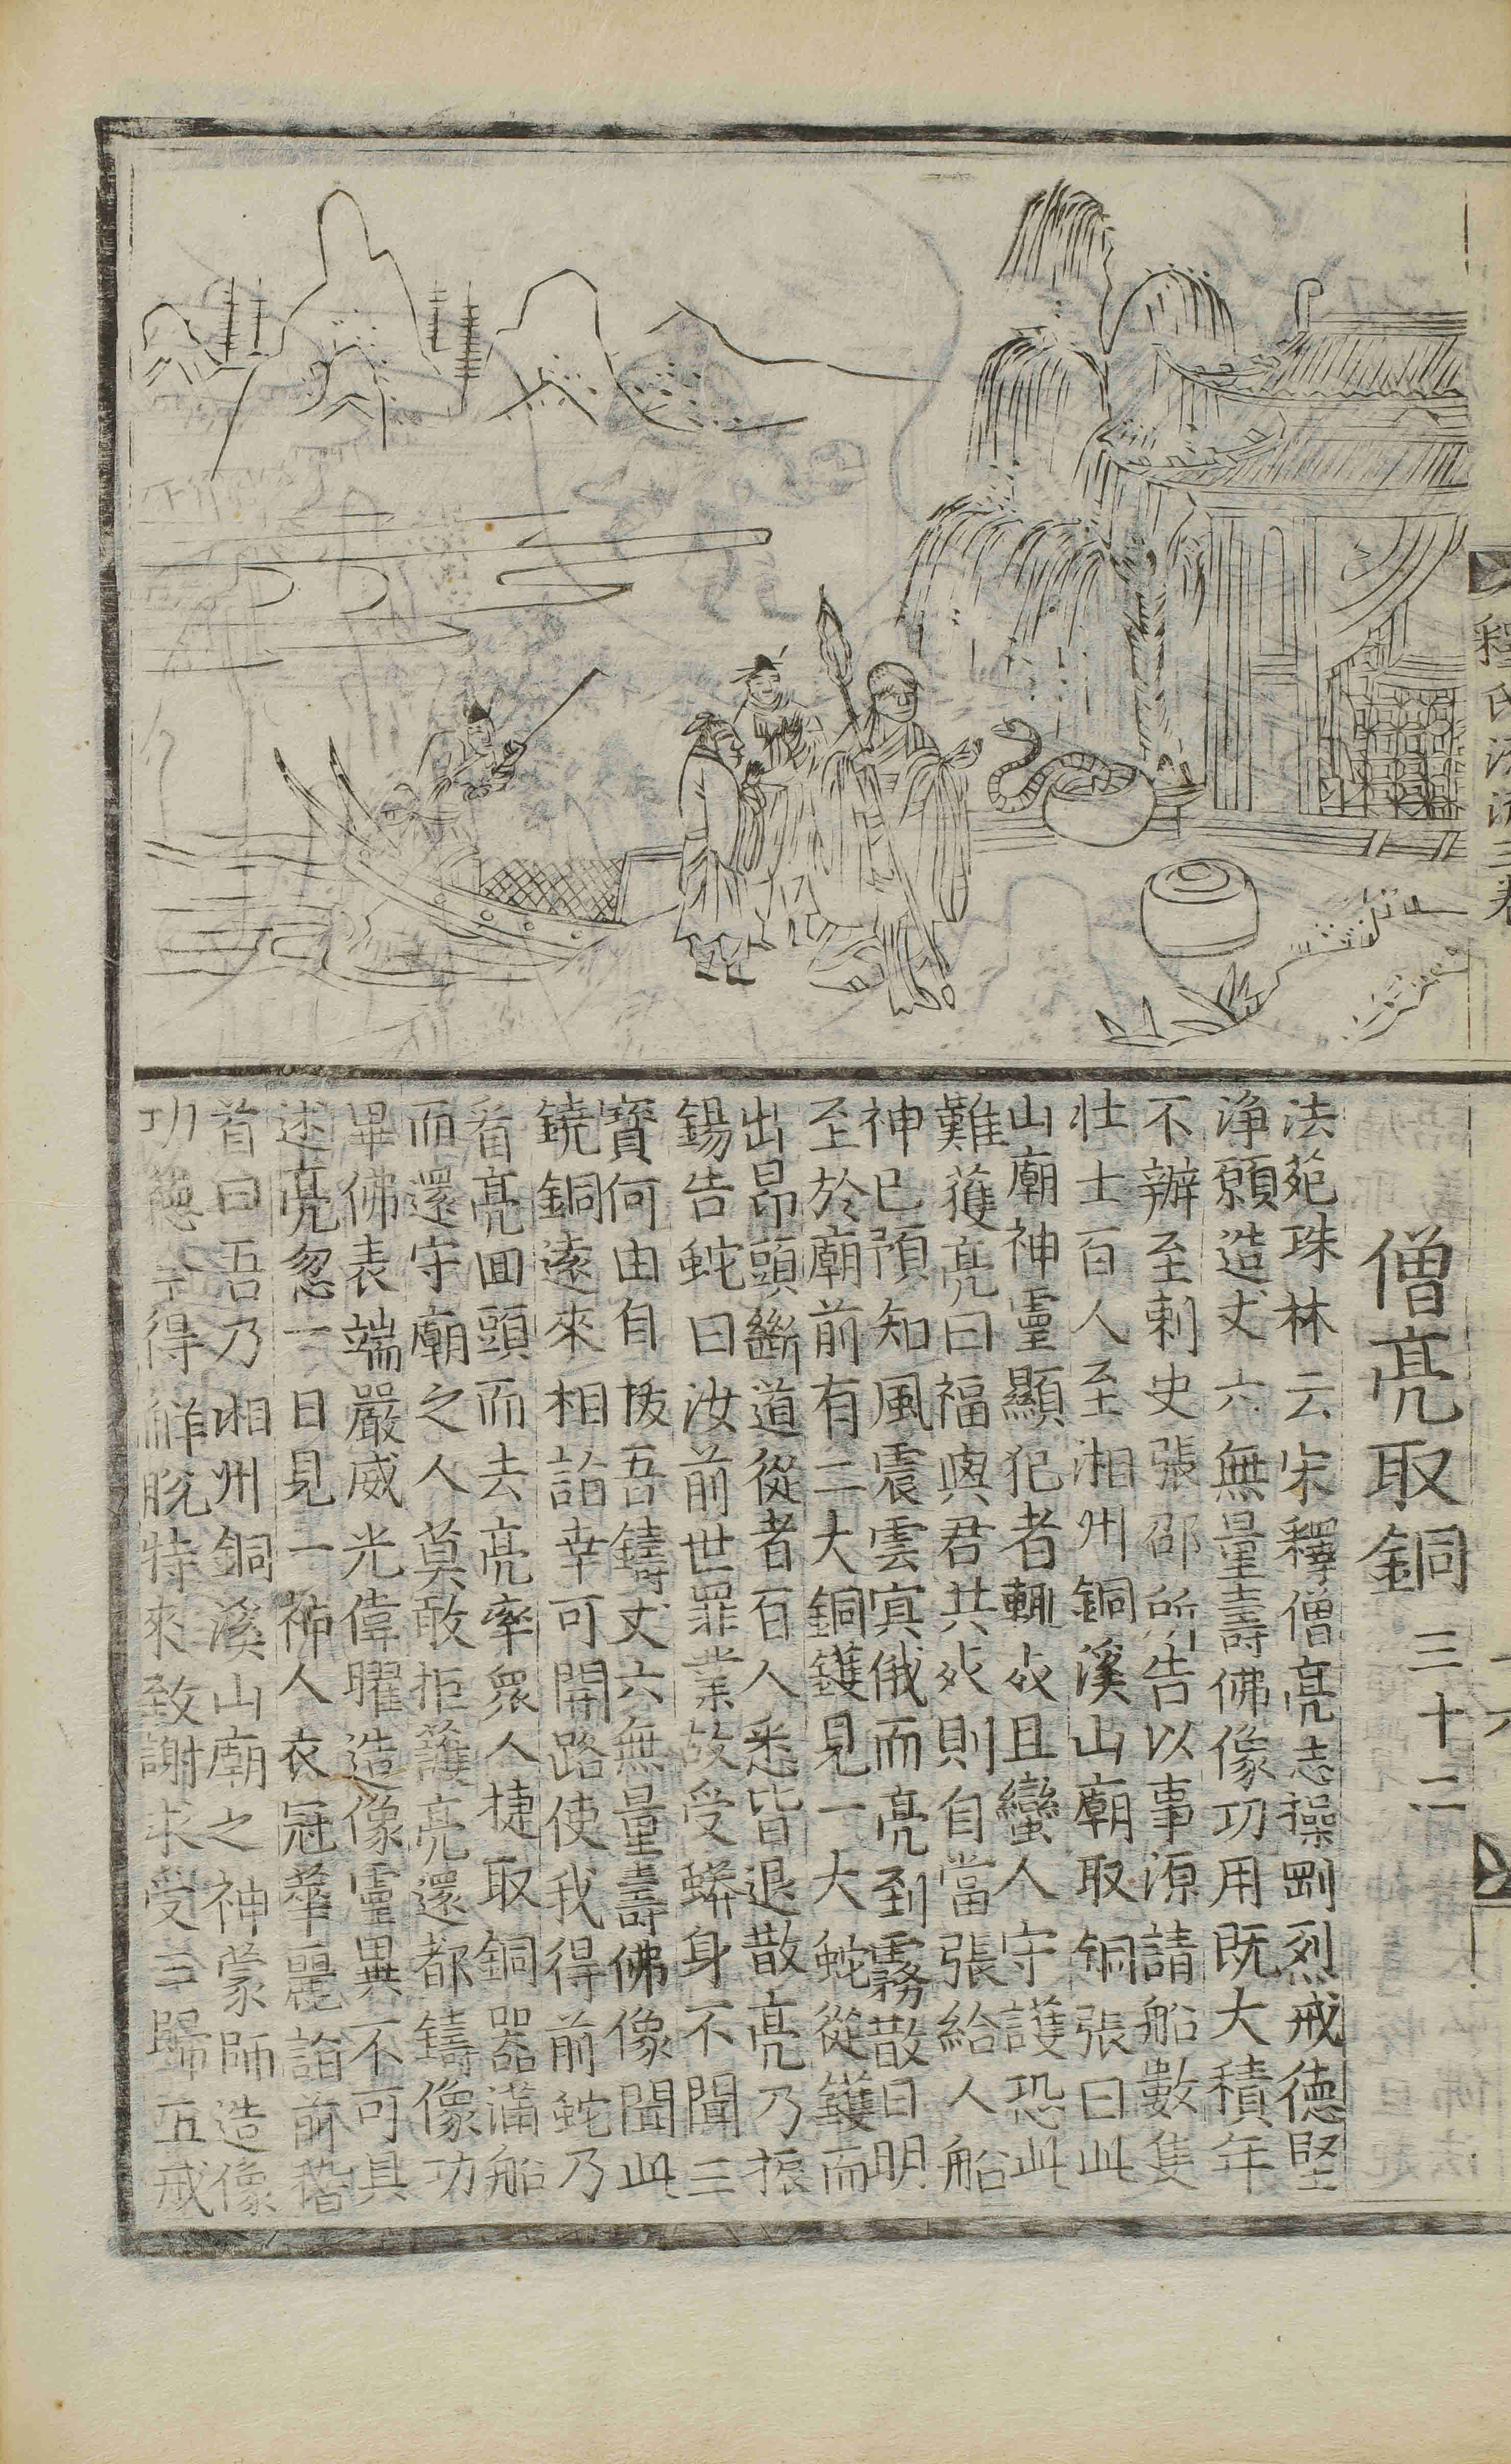 釋氏法源三卷
十六
僧亮取銅 三十二
法苑珠林云宋釋僧亮志操剛烈戒德堅
淨願造丈六無量壽佛像功用既大積年
不辦至剌史張邵所告以事源請船數隻
壯士百人至湘州銅溪山廟取銅張曰此
山廟神靈顯犯者輙死且蠻人守護恐此
難獲亮曰福與君共死則自當張給人船
神已預知風震雲冥俄而亮到霧散日明
至於廟前有二大銅鑊見一大蛇從鑊而
出昂頭斷道從者百人悉皆退散亮乃振
錫告蛇曰汝前世罪業故受蟒身不聞三
寶何由自拔吾鑄丈六無量壽佛像聞此
鐃銅遠來相詣幸可開路使我得前蛇乃
看亮囬頭而去亮率衆人捷取銅器滿船
而還守廟之人莫敢拒護亮還都鑄像功
畢佛表端嚴威光偉曜造像靈異不可具
述亮忽一日見一神人衣冠華麗詣前稽
首曰吾乃湘州銅溪山廟之神蒙師造像
功德令得觧脫特來致謝求受三歸五戒